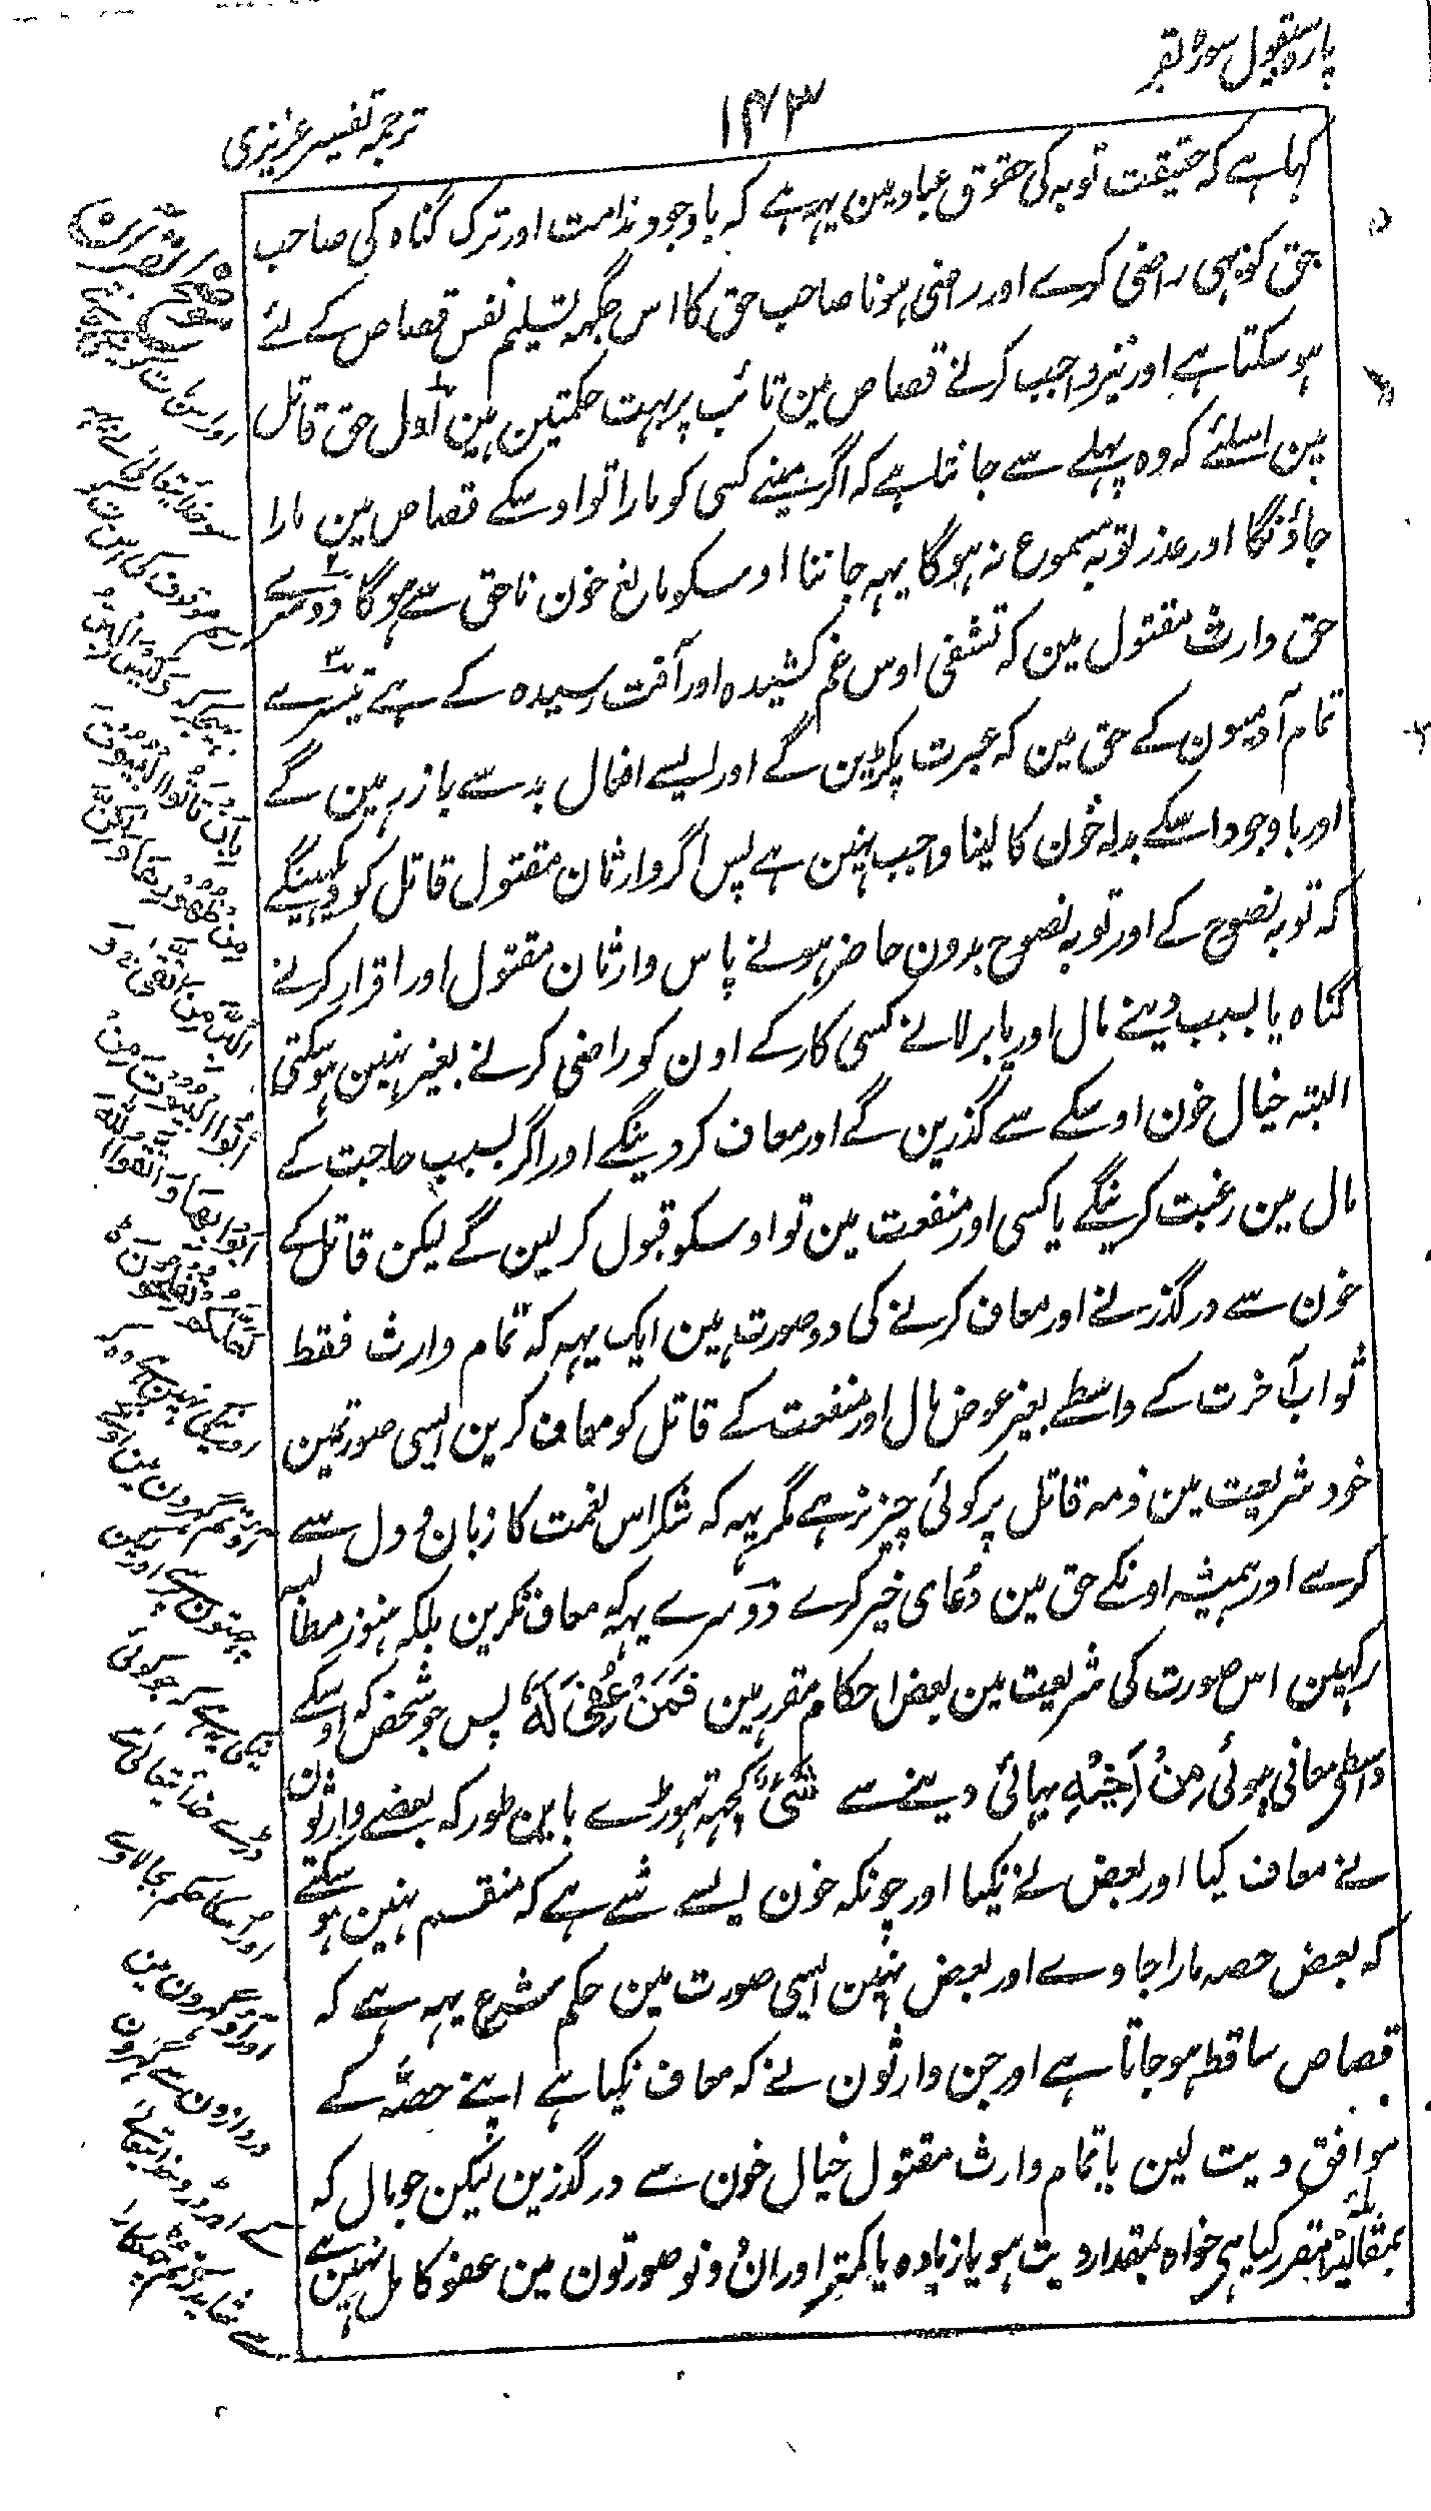 پارہ سیقول سورہ بقر
۱۴۳
ترجمہ تفسیر عزیزی
کہا ہے کہ حقیقت توبہ کی حقوق عباد مین یہہ ہے کہ باوجود ندامت اور ترک گناہ کی صاحب
حق کو بہی راضی کرے اور راضی ہونا صاحب حق کا اس جگہہ تسلیم نفس قصاص کے لئے
ہو سکتا ہے اور نیز واجب کرنے قصاص مین تائب پر بہت حکمتین ہین اول حق قاتل
مین اسلئے کہ وہ پہلے سے جانتا ہے کہ اگر مینے کسی کو مارا تو اوسکے قصاص مین مارا
جاؤنگا اور عذر توبہ مسموع نہ ہوگا یہہ جاننا اوسکو مانع خون ناحق سے ہوگا دوسرے
حق وارث مقتول مین کہ تشفی اوس غم کشیدہ اور آفت رسیدہ کے ہے تیسرے
تمام آدمیون کے حق مین کہ عبرت پکڑین گے اور ایسے افعال بد سے باز رہین گے
اور باوجود اسکے بدلہ خون کا لینا واجب نہین ہے پس اگر وارثان مقتول قاتل کو دیکہینگے
کہ توبہ نصوح کے اور توبہ نصوح بدون حاضر ہونے پاس وارثان مقتول اور اقرار کرنے
گناہ یا بسبب دینے مال اور یا بر لانے کسی کار کے اون کو راضی کرنے بغیر نہین ہوسکتی
البتہ خیال خون اوسکے سے گذرین گے اور معاف کر دینگے اور اگر بسبب حاجت کے
مال مین رغبت کرینگے یا کسی اور منفعت مین تو اوسکو قبول کر لین گے لیکن قاتل کے
خون سے درگذرنے اور معاف کرنے کی دو صورت ہین ایک یہہ کہ تمام وارث فقط
ثواب آخرت کے واسطے بغیر عوض مال اور منفعت کے قاتل کو معاف کرین ایسی صورتمین
خود شریعت مین ذمہ قاتل پر کوئی چیز نہ ہے مگر یہہ کہ شکر اس نعمت کا زبان و دل سے
کرے اور ہمیشہ اونکے حق مین دعای خیر کرے دوسرے یہہ کہ معاف نکرین بلکہ ہنوز مطالبہ
رکہین اس صورت کی شریعت مین بعض احکام مقرر ہین فَمَنْ عُفِیَ لَهٗ پس جو شخص کہ اوسکے
واسطے معافی ہوئی مِنْ اَخِیْهِ بہائی دینے سے شَیْءٌ کچہہ تہوڑے باین طور کہ بعضے وارثون
نے معاف کیا اور بعض نے نکیا اور چونکہ خون ایسے شے ہے کہ منقسم نہین ہو سکتے
کہ بعض حصہ مارا جاوے اور بعض نہین ایسی صورت مین حکم شرع یہہ ہے کہ
قصاص ساقط ہو جاتا ہے اور جن وارثون نے کہ معاف نکیا ہے اپنے حصّہ کے
موافق دیت لین یا تمام وارث مقتول خیال خون سے درگذرین لیکن جو مال کہ
مقرر کیا ہی خواہ بمقدار دیت ہو یا زیادہ یا کمتر اور ان دونو صورتون مین عفو کامل نہین ہے
بِاَنْ تَاْتُوا الْبُیُوْتَ
مِنْ ظُهُوْرِهَا وَلٰکِنَّ
الْبِرَّ مَنِ اتَّقٰی وَاْ
تُوا الْبُیُوْتَ مِنْ
اَبْوَابِهَا وَاتَّقُوا اللهَ
لَعَلَّکُمْ تُفْلِحُوْنَ
اور نیکی نہین ہے یہہ
کہ تم گہرون مین آؤ
پچہتون سے اور لیکن
نیکی یہہ ہے کہ جو کوئی
ڈرے خدایتعالیٰ سے
اور اسکا حکم بجالاوے
اور آؤ گہرون مین
دروازون سے گہرون
کے اور ڈرو خدایتعالیٰ
سے شاید کہ تم چہٹکارا